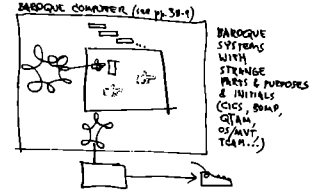 BAROQUE COMPUTER (see pp. 38-9)
BAROQUE
SYSTEMS
WITH
STRANGE
PARTS & PURPOSES
& INITIALS
(CICS, BOMP,
QTAM,
OS/MVT,
TCAM...)